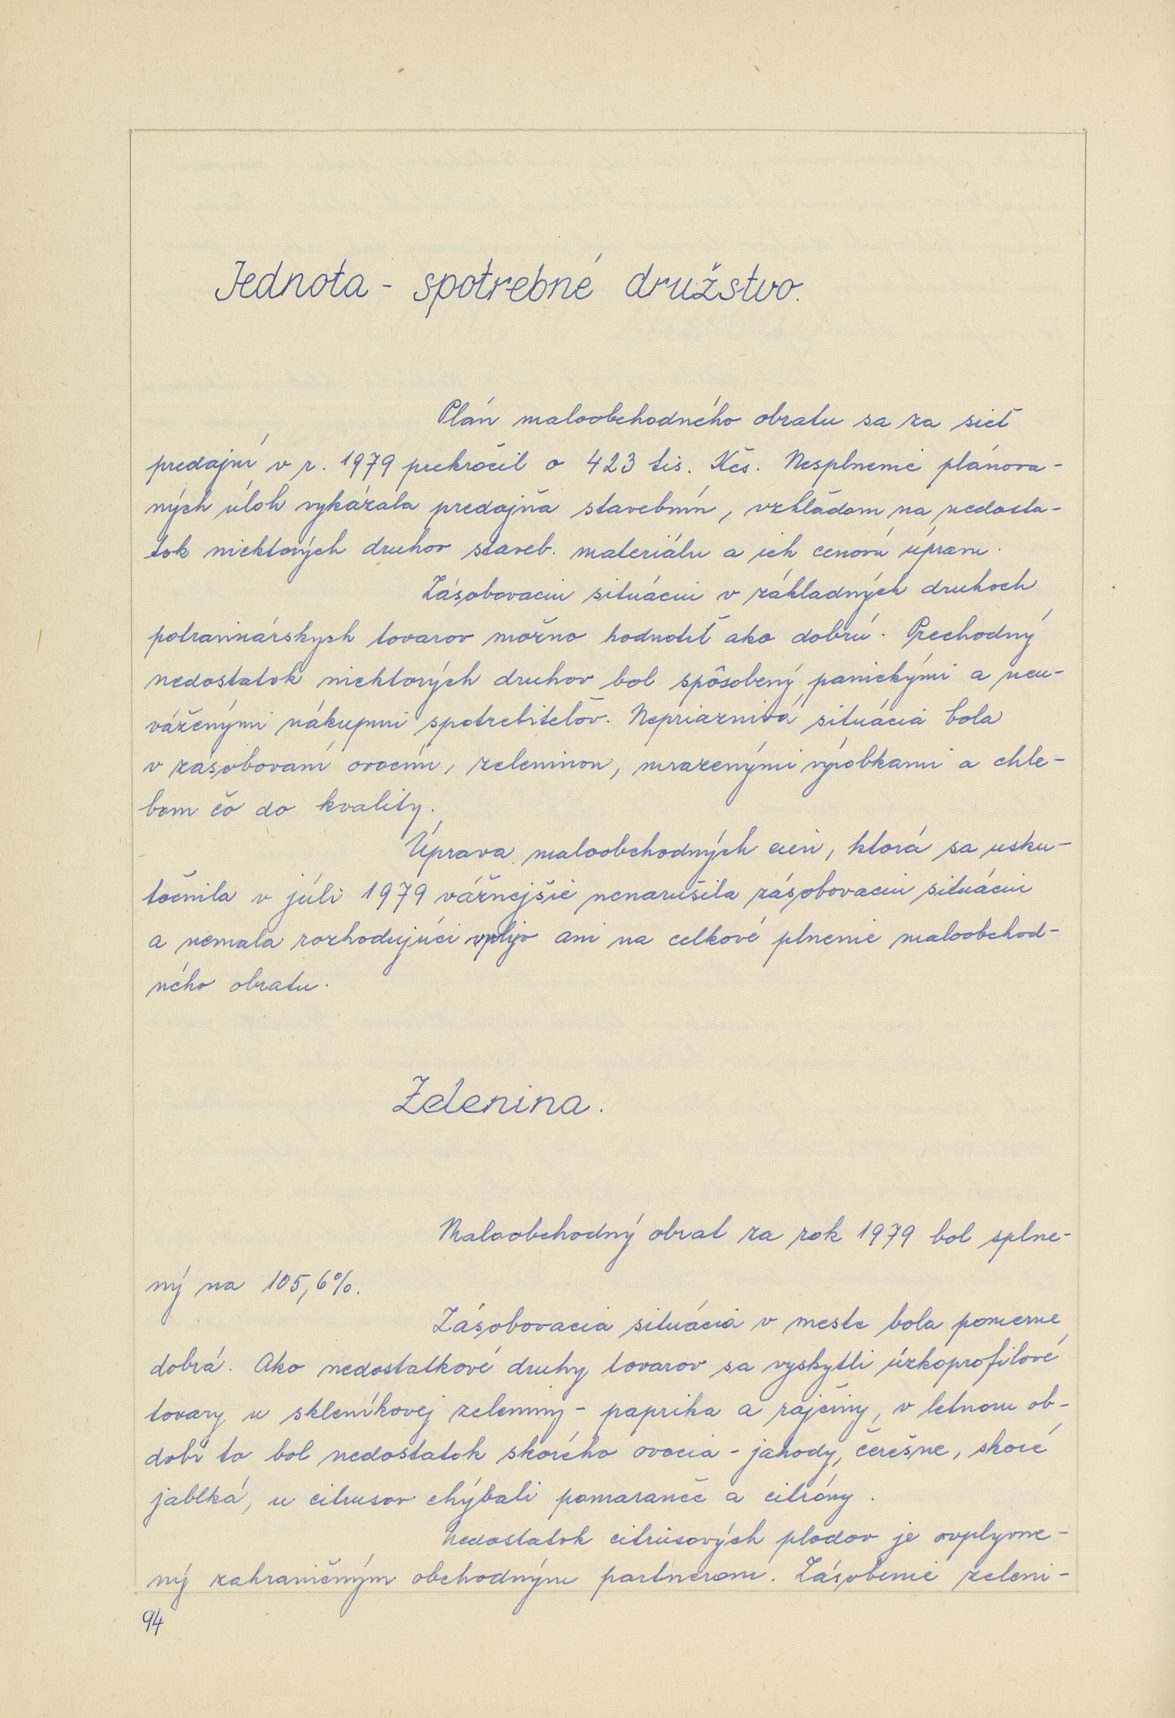 Jednota - spotrebné družstvo.
Plán maloobchodného obratu sa za sieť
predajní v r. 1979 prekročil o 423 tis. Kčs. Nesplnenie plánova-
ných úloh vykázala predajňa stavebnín, vzhľadom na nedosta-
tok niektorých druhov staveb. materiálu a ich cenovú úpravu.
Zásobovaciu situáciu v základných druhoch
potravinárskych tovarov možno hodnotiť ako dobrú. Prechodný
nedostatok niektorých druhov bol spôsobený panickými a neu-
váženými nákupmi spotrebiteľov. Nepriaznivá situácia bola
v zásobovaní ovocím, zeleninou, mrazenými výrobkami a chle-
bom čo do kvality.
Úprava maloobchodných cien, ktorá sa usku-
točnila v júli 1979 vážnejšie nenarušila zásobovaciu situáciu
a nemala rozhodujúci vplyv ani na celkové plnenie maloobchod-
ného obratu.
Zelenina.
Maloobchodný obrat za rok 1979 bol splne-
ný na 105,6%.
Zásobovacia situácia v meste bola pomerne
dobrá. Ako nedostatkové druhy tovarov sa vyskytli úzkoprofilové
tovary u skleníkovej zeleniny - paprika a rajčiny, v letnom ob-
dobí to bol nedostatok skorého ovocia - jahody, čerešne, skoré
jablká, u citrusov chýbali pomaranče a citróny.
Nedostatok citrusových plodov je ovplyvne-
ný zahraničným obchodným partnerom. Zásobenie zeleni-
94